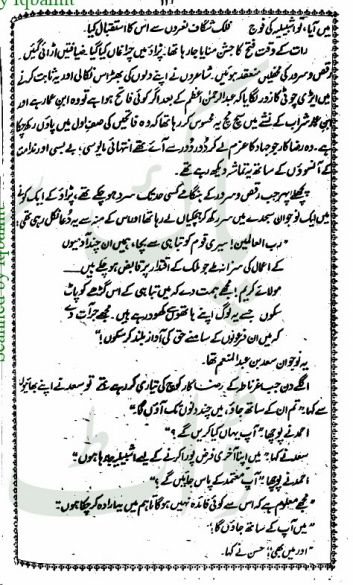 میں آیا، تو اشبیلیہ کی فوج نے فلک شگاف نعروں سے اس کا استقبال کیا۔
رات کے وقت فتح کا جشن منایا جا رہا تھا۔ پڑاؤ میں چراغاں کیا گیا۔ ضیافتیں اڑائی گئیں۔
رقص و سرود کی محفلیں منعقد ہوئیں۔ شاعروں نے اپنے دلوں کی بھڑاس نکالی اور یہ ثابت کرنے
میں ایڑی چوٹی کا زور لگایا کہ عبدالرحمٰن اعظم کے بعد اگر کوئی فاتح ہوا ہے تو وہ ابن عمار ہے اور
ابن عمار شراب کے نشے میں سچ مچ یہ محسوس کر رہا تھا کہ وہ فاتحین کی صف اول میں پاؤں رکھ چکا
ہے۔ وہ رضا کار جو جہاد کا عزم لے کر دور دور سے آئے تھے انتہائی مایوسی، بے بسی اور ندامت
کے آنسوؤں کے ساتھ یہ تماشہ دیکھ رہے تھے۔
پچھلے پہر جب رقص و سرود کے ہنگامے کسی حد تک سرد ہو چکے تھے، پڑاؤ کے ایک کونے
میں ایک نوجوان سجدے میں سر رکھ کر ہچکیاں لے رہا تھا اور اس کے منہ سے یہ دُعا نکل رہی تھی:
"رب العالمین! میری قوم کو تباہی سے بچا، ہمیں ان چند آدمیوں
کے اعمال کی سزا نہ دے جو ملک کے اقتدار پر قابض ہو چکے ہیں
مولائے کریم! مجھے ہمت دے کہ میں تباہی کے اس گڑھے کو پاٹ
سکوں جسے یہ لوگ اپنے ہاتھوں سے کھود رہے ہیں۔ مجھے جرأت دے
کہ میں ان فرعونوں کے سامنے حق کی آواز بلند کر سکوں!"
یہ نوجوان سعد بن عبدالمنعم تھا۔
اگلے دن جب غرناطہ کے رضا کار کوچ کی تیاری کر رہے تھے تو سعد نے اپنے بھائیوں
سے کہا: "تم ان کے ساتھ جاؤ، میں چند دنوں تک آؤں گا۔"
احمد نے پوچھا: "آپ یہاں کیا کریں گے؟"
سعد نے کہا: "میں اپنا آخری فرض پورا کرنے کے لیے اشبیلیہ جا رہا ہوں"
احمد نے پوچھا: "آپ معتمد کے پاس جائیں گے؟"
"مجھے معلوم ہے کہ اس سے کوئی فائدہ نہیں ہوگا تاہم میں یہ ارادہ کر چکا ہوں"
"میں آپ کے ساتھ جاؤں گا!"
"اور میں بھی!" حسن نے کہا۔